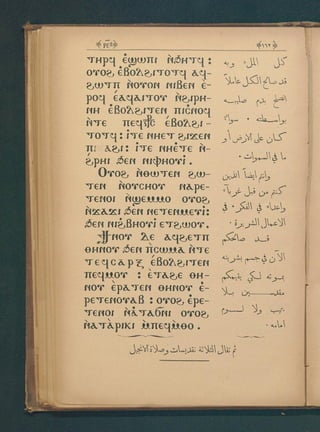 ١١٢
ⲧⲏⲣϥ ⲉ̀ϣⲱⲡⲓ ⲛ̀ϧⲏⲧϥ :
ⲟⲩⲟϩ ⲉ̀ⲃⲟⲗϩⲓⲧⲟⲧϥ ⲁϥ-
ϩⲱⲧⲡ ⲛ̀ⲟⲩⲟⲛ ⲛⲓⲃⲉⲛ ⲉ̀-
ⲣⲟϥ ⲉ̀ⲁϥⲁⲓⲧⲟⲩ ⲛ̀ϩⲓⲣⲏ-
ⲛⲏ ⲉ̀ⲃⲟⲗϩⲓⲧⲉⲛ ⲡⲓⲥ̀ⲛⲟϥ
ⲛ̀ⲧⲉ ⲡⲉϥ⳧ ⲉ̀ⲃⲟⲗϩⲓ-
ⲧⲟⲧϥ : ⲓⲧⲉ ⲛⲏⲉⲧ ϩⲓϫⲉⲛ
ⲓⲧⲉ ⲛⲏⲉ̀ⲧⲉ ⲛ̀-
ϩⲣⲏⲓ ϧⲉⲛ ⲛⲓⲫⲏⲟⲩⲓ̀ .
ⲟⲩⲟϩ ⲛ̀ⲑⲱⲧⲉⲛ ϩⲱ-
ⲧⲉⲛ ⲛ̀ⲟⲩⲥⲏⲟⲩ ⲛⲁⲣⲉ-
ⲧⲉⲛⲟⲓ ⲛ̀ϣⲉⲙⲙⲟ ⲟⲩⲟϩ
ⲛ̀ϫⲁϫⲓ ϧⲉⲛ ⲛⲉⲧⲉⲛⲙⲉⲩⲓ̀ :
ϧⲉⲛ ⲛⲓϩ̀ⲃⲏⲟⲩⲓ ⲉⲧϩⲱⲟⲩ .
ϯⲛⲟⲩ ⲇⲉ ⲁϥϩⲉⲧⲡ
ⲑⲏⲛⲟⲩ ϧⲉⲛ ⲡ̀ⲥⲱⲙⲁ ⲛ̀ⲧⲉ
ⲧⲉϥⲥⲁⲣⲝ ⲉ̀ⲃⲟⲗϩⲓⲧⲉⲛ
ⲡⲉϥⲙⲟⲩ : ⲉ̀ⲧⲁϩⲉ ⲑⲏ-
ⲛⲟⲩ ⲉ̀ⲣⲁⲧⲉⲛ ⲑⲏⲛⲟⲩ ⲉ̀-
ⲣⲉⲧⲉⲛⲟⲩⲁⲃ : ⲟⲩⲟϩ ⲉ̀ⲣⲉ-
ⲧⲉⲛⲟⲓ ⲛ̀ⲁⲧⲁϭⲛⲓ ⲟⲩⲟϩ
ⲛ̀ⲁⲧⲁ̀ⲣⲓⲕⲓ ⲙ̀ⲡⲉϥⲙ̀ⲑⲟ .
كل المل وبه
قد صالح الكل عاملاً
الصلح بدم صليبه
بواسطته . سواءً
كان على الارض او
ما في السموات .
وانتم ايضاً الذين
كنتم من قبل غرباءً
واعداءً في الفكر في
الاعمال الشريرة .
قد صالحكم
الآن في جسم بشريته
بموته لكي يقيمكم
مقدسين بلا
عيب ولا لوم
امامه .
ثم تقال الثلاثة تقديسات وصلاة الانجيل